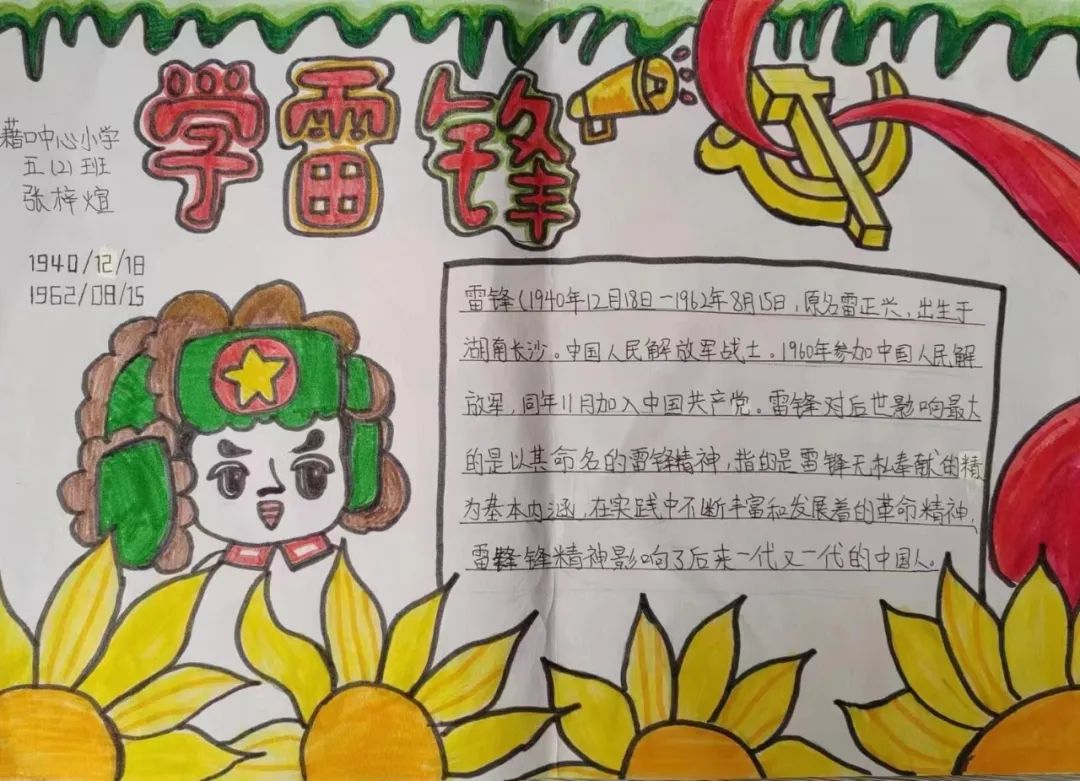 学雷锋
藉口中心小学
五(2)班
张梓煊
1940/12/18
1962/08/15
雷锋(1940年12月18日—1962年8月15日,原名雷正兴,出生于
湖南长沙。中国人民解放军战士。1960年参加中国人民解
放军,同年11月加入中国共产党。雷锋对后世影响最大
的是以其命名的雷锋精神,指的是雷锋无私奉献的精
为基本内涵,在实践中不断丰富和发展着的革命精神、
雷锋精神影响了后来一代又一代的中国人。